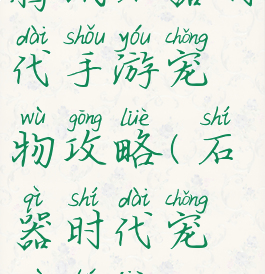 dài shǒu yóu chǒng
代手游宠
wù gōng lüè shí
物攻略(石
qì shí dài chǒng
器时代宠